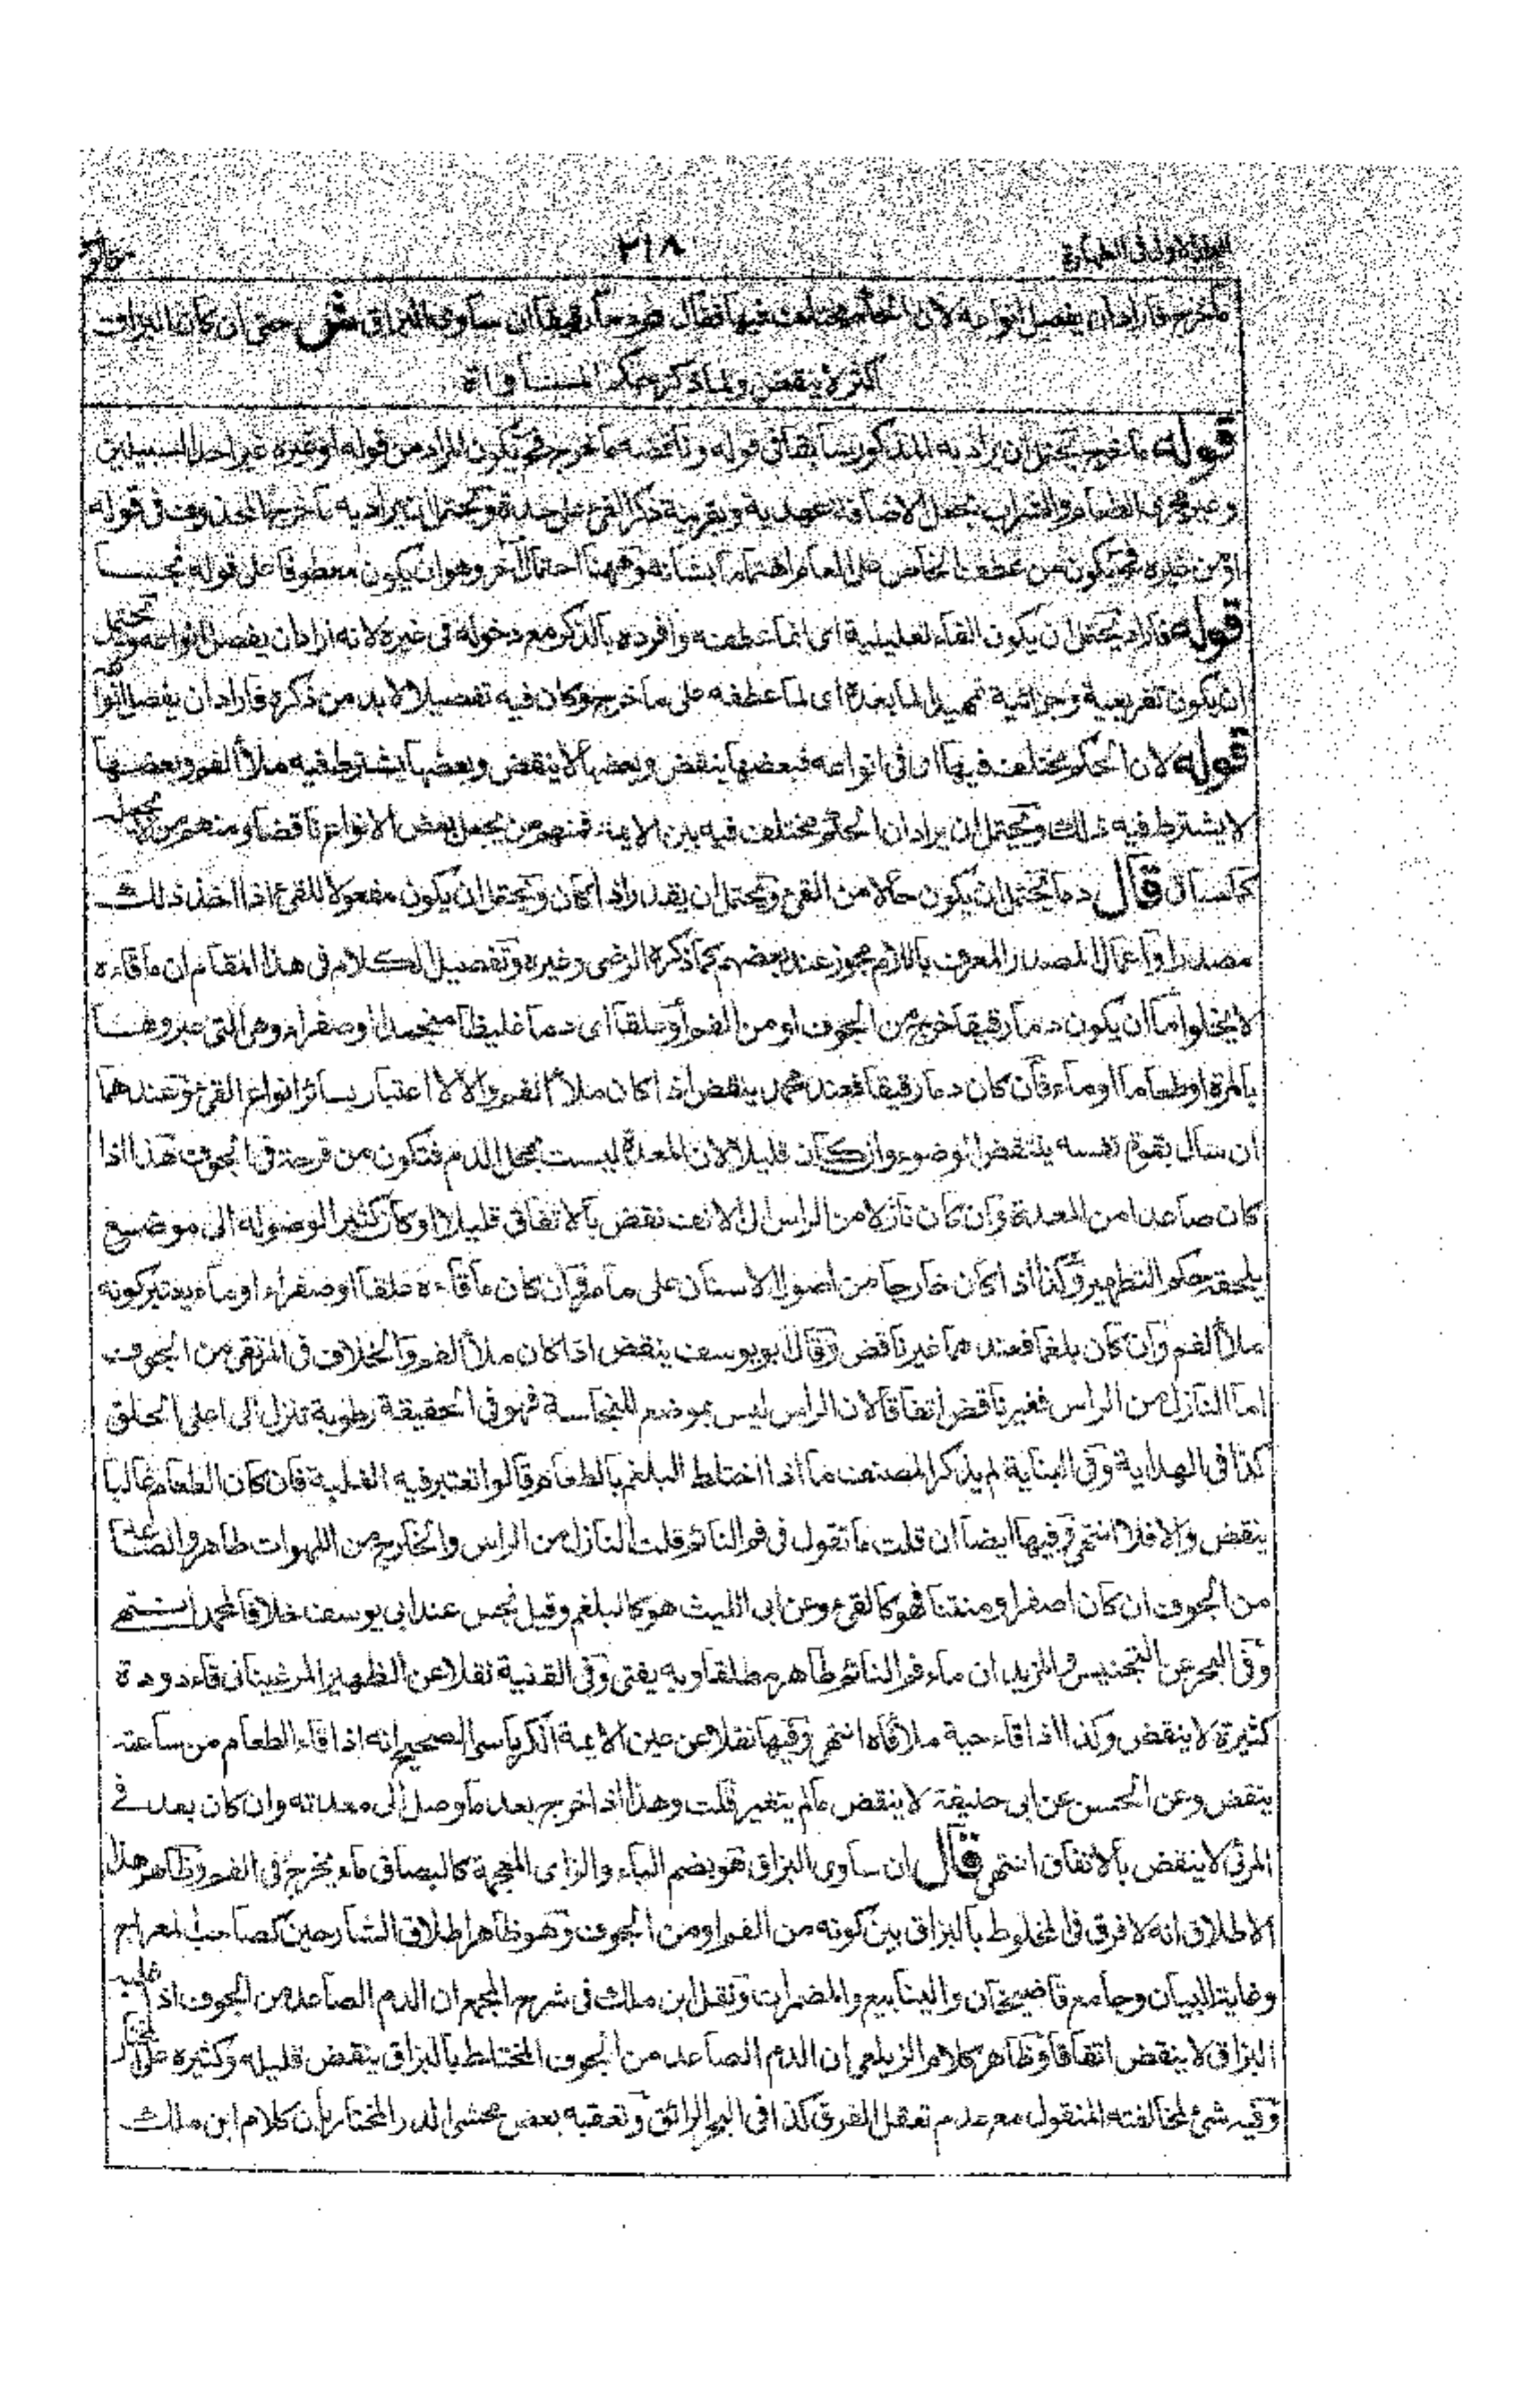 ٢١٨
ما خرج فاراد ان يفصل انواعه لان الحكم مختلف فيها فقال م دما رقيقا ان ساوى البزاق ش حتى ان كان البزاق
اكثر لا ينقض ولما ذكر حكم المساواة
قوله ما خرج يحتمل ان يراد به المذكور سابقا فى قوله وناقضه ما خرج فح يكون المراد من قوله او غيره غير احد السبيلين
وغير مجرى الطعام والشراب بجعل الاضافة عهدية وبقرينة ذكر القئ على حدة ويحتمل ان يراد به ما خرج المحذوف فى قوله
او من غيره فح يكون من عطف الخاص على العام اهتماما بشانه وههنا احتمال آخر وهو ان يكون معطوفا على قوله نجسا
قوله فاراد يحتمل ان يكون الفاء تعليلية اى انما عطفه وافرده بالذكر مع دخوله فى غيره لانه اراد ان يفصل انواعه ويحتمل
ان يكون تفريعية وجزائية تمهيدا لما بعده اى لما عطفه على ما خرج وكان فيه تفصيل لا بد من ذكره فاراد ان يفصل انواعه
قوله لان الحكم مختلف فيها اى فى انواعه فبعضها ينقض وبعضها لا ينقض وبعضها يشترط فيه ملأ الفم وبعضها
لا يشترط فيه ذلك ويحتمل ان يراد ان الحكم مختلف فيه بين الايمة فمنهم من يجعل بعض الانواع ناقضا ومنهم من لا يجعله
كما سيأتى قال دما يحتمل ان يكون حالا من القئ ويحتمل ان يقدر اذا كان ويحتمل ان يكون مفعولا للقئ اذا اخذ ذلك
مصدرا واعمال المصدر المعرف باللام مجوز عند بعضهم كما ذكره الرضى وغيره وتفصيل الكلام فى هذا المقام ان ما قاءه
لا يخلو اما ان يكون دما رقيقا خرج من الجوف او من الفم او علقا اى دما غليظا منجمدا او صفراء وهى التى عبروها
بالمرة او طعاما او ماء فان كان دما رقيقا فعند محمد ينقض اذا كان ملأ الفم والا لا اعتبارا بسائر انواع القئ وعندهما
ان سال بقوة نفسه ينتقض الوضوء وان كان قليلا لان المعدة ليست بمحل الدم فتكون من قرحة فى الجوف هذا اذا
كان صاعدا من المعدة وان كان نازلا من الراس الى الانف نقض بالاتفاق قليلا او كان كثيرا لوصوله الى موضع
يلحقه حكم التطهير وكذا اذا كان خارجا من اصول الاسنان على ما مر وان كان ما قاءه علقا او صفراء او ماء يعتبر كونه
ملأ الفم وان كان بلغما فعندهما غير ناقض وقال ابو يوسف ينقض اذا كان ملأ الفم والخلاف فى المرتقى من الجوف
اما النازل من الراس فغير ناقض اتفاقا لان الراس ليس بموضع للنجاسة فهو فى الحقيقة رطوبة تنزل الى اعلى الحلق
كذا فى الهداية وفى البناية لم يذكر المصنف ما اذا اختلط البلغم بالطعام وقالوا تعتبر فيه الغلبة فان كان الطعام غالبا
ينقض والا فلا انتهى وفيها ايضا ان قلت ما تقول فى فم النائم قلت النازل من الراس والخارج من اللهوات طاهر والصاعد
من الجوف ان كان اصفر او منتنا فهو كالقئ وعن ابى الليث هو كالبلغم وقيل نجس عند ابى يوسف خلافا لمحمد انتهى
وفى البحر عن التجنيس والمزيد ان ماء فم النائم طاهر مطلقا وبه يفتى وفى القنية نقلا عن الظهير المرغينانى قاء دودة
كثيرة لا ينقض وكذا اذا قاء حية ملأ فاه انتهى وفيها نقلا عن عين الايمة الكرباسى الصحيح انه اذا قاء الطعام من ساعته
ينقض وعن الحسن عن ابى حنيفة لا ينقض ما لم يتغير قلت وهذا اذا خرج بعد ما وصل الى معدته وان كان بعد فى
المرئ لا ينقض بالاتفاق انتهى قال ان ساوى البزاق هو بضم الباء والزاى المعجمة كالبصاق ماء يخرج فى الفم وظاهر هذا
الاطلاق انه لا فرق فى المخلوط بالبزاق بين كونه من الفم او من الجوف وهو ظاهر اطلاق الشارحين كصاحب المعراج
وغاية البيان وجامع قاضيخان والينابيع والمضمرات ونقل ابن ملك فى شرح المجمع ان الدم الصاعد من الجوف اذا غلبه
البزاق لا ينقض اتفاقا وظاهر كلام الزيلعى ان الدم الصاعد من الجوف المختلط بالبزاق ينقض قليله وكثيره على المختار
وفيه شئ لمخالفته المنقول مع عدم تعقل الفرق كذا فى البحر الرائق وتعقبه بعض محشى الدر المختار بأن كلام ابن ملك